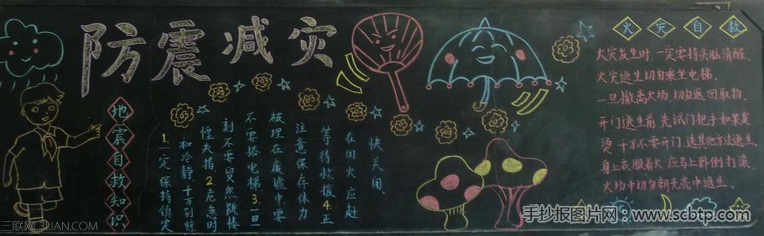 防震减灾
地震自救知识
1.一定保持镇定
和冷静千万别惊
慌失措2.危急时
刻不要贸然跳楼
不要搭电梯3.一旦
被埋在废墟中要
注意保存体力
等待救援4.正
在用火应赶
快关闭.
火灾自救
火灾发生时,一定要持头脑清醒.
火灾逃生切勿乘坐电梯.
一旦撤离火场,切勿返回取物.
开门逃生前,先试门把手如果发
烫,千万不要开门,选其他方法逃生.
身上衣服着火,应马上卧倒打滚.
火场中切勿朝光亮中逃生.
三联网 3LIAN.COM
手抄报图片网：www.scbtp.com